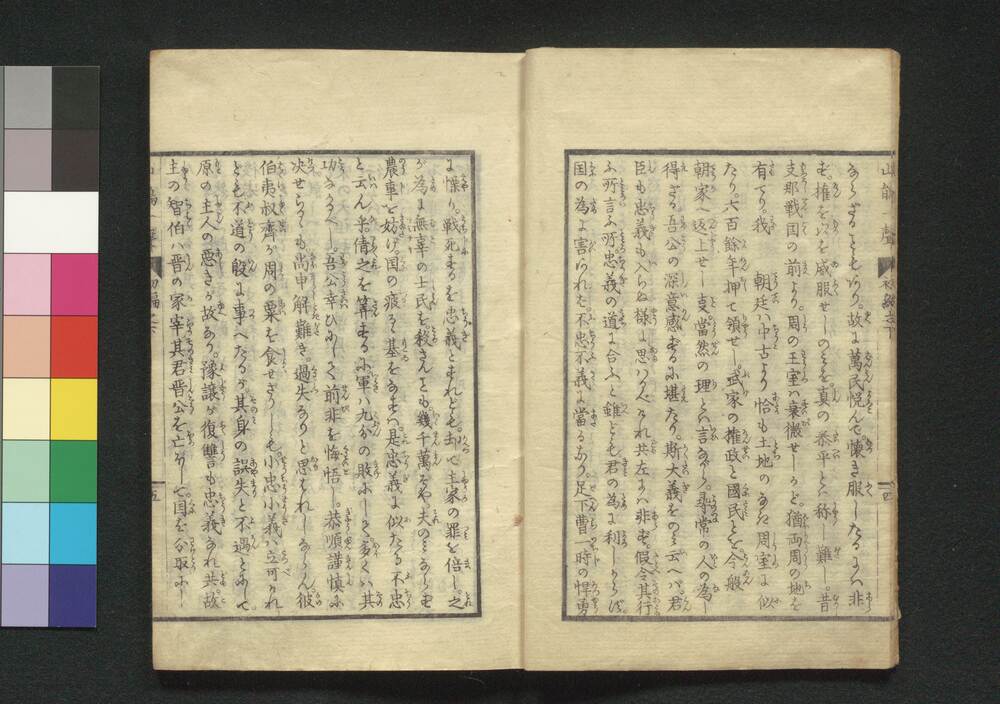 あらざることもあり。故に萬民悦んで懐き服したるには非
ず。推を以て威服せしのミを。真の泰平とハ称し難し。昔
支那戦国の前より。周の王室ハ衰微せしかど。猶両周の地を
有てり我 朝廷ハ中古より恰も土地のなき周室に似
たり六百餘年押て領せし。武家の推政と國民とを今般
朝家へ返上せし㕝當然の理とハ言ながら。尋常の人の為し
得ざる吾公の深意感ずるに堪たり。斯大義をのミ云へバ。君
臣も忠義も入らぬ様に思ハるべけれ共左にハ非ず。假令其行
ふ所言ふ所忠義の道に合ふと雖ども。君の為に利しからず
国の為に害られバ不忠不義に當るなり。足下曹一時の悍勇
に慄り。戦死するを忠義とすれども。却て主家の罪を倍し。之
が為に無辜の士民を殺さんとも幾千萬ぞや夫のミならず
農事を妨げ国の疲るゝ基をなすハ。是忠義に似たる不忠
と云ん乎倩之を算するに軍ハ九分の敗にして多くハ其
功なかるべし吾公幸ひにして前非を悔悟し。恭順謹慎に
决せらるゝも尚申解難き。過失なりと思もれしならん彼
伯夷叔齊が周の粟を食せざりしも。小忠小義ハ立可けれ
ども不道の殷に事へたるが。其身の誤失と不過とにして
原の主人の悪きが故なり。豫讓が復讐も忠義なれ共。故
主の智伯ハ晋の家宰其君晋公を亡ぼして。国を分取にし